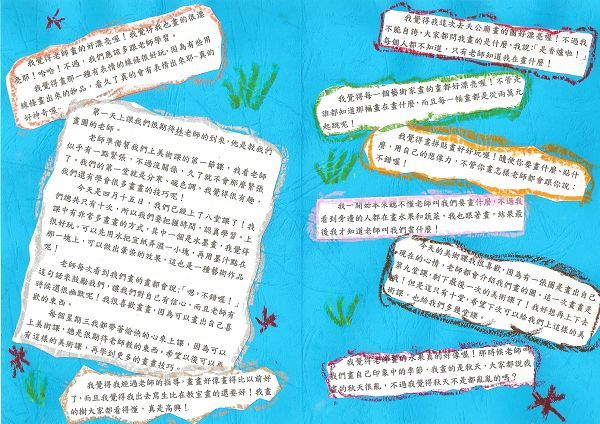 我覺得朱師畫的好漂亮喔！我覺得我也畫的很漂
亮耶！哈哈！不過，我們應該多跟老師學習。
我覺得畫那一種有表情的線條很好玩，因為有些用
線條畫出來的物品，看久了真的會有表情出來耶，真的
好神奇喔。
第一天上課我們很期待桂老師的到來，他是教我們
畫圖的老師。
老師準備幫我們上美術課的第一節課，我看老師
似乎有一點緊張，不過沒關係，久了就不會那麼緊張
了。我們的第一堂就是分享、喊色調。我覺得很有趣，
我們還有學會很多畫畫的技巧呢！
今天是四月十五日，我們已經上了八堂課了！我
們總共只有十次，所以我們要把握時間，認真學習。上
課中有非常多畫畫的方式，其中一個是水墨畫，我覺得
很好玩。可以先用水把宣紙弄濕一小塊，再用墨汁點在
那一塊上，可以做出暈染的效果，這也是一種藝術作品
呢！
老師每次看到我們畫的畫都會說：「嗯，不錯喔！」
這句話來鼓勵我們，讓我們對自己有信心，而且老師有
時候還很幽默呢！我很喜歡畫畫，因為可以畫出自己喜
歡的東西。
每個星期三我都帶著愉快的心來上課，因為可以
上美術課，總是很期待老師教的東西。希望以後可以
有這樣的美術課，再學到更多的畫畫技巧。
我覺得我經過老師的指導，畫畫好像畫得比以前好
了，而且我覺得我出去寫生比在教室畫的還要好！我畫
的樹大家都看得懂，真是高興！
我覺得我這次去天公廟畫的圖好漂亮喔！不過我
不能自誇，大家都問我畫的是什麼，我說：「是香爐啦！」
每個人都不知道，只有老師知道我在畫什麼！
我覺得每一個藝術家畫的畫都好漂亮喔！不管是
誰都知道那幅畫在畫什麼，而且每一幅畫都是從兩萬元
起跳呢！
我覺得畫拼貼畫好好玩喔！隨便你要畫什麼、貼什
麼，用自己的想像力，不管你畫怎樣老師都會跟你說：
不錯喔！
我一開始本來聽不懂老師叫我們畫什麼，不過我
看到旁邊的人都在畫水果和蔬菜，我也跟著畫，結果最
後我才知道老師叫我們畫什麼！
今天的美術課我很喜歡，因為有一張圖是畫出自己
現在的心情，老師都會介紹我們畫的圖。這一次畫畫是
第九堂課，剩下最後一次的美術課了！我好想再上下去
喔！但是這只有十堂，希望下次可以給我們上這樣的美
術課，也給我們多幾堂課。
我覺得老師畫的水果真的好像喔！那時候老師叫
我們畫自己印象中的季節，我畫的是秋天，大家都說我
畫的秋天很亂，不過我覺得秋天不是都亂亂的嗎？